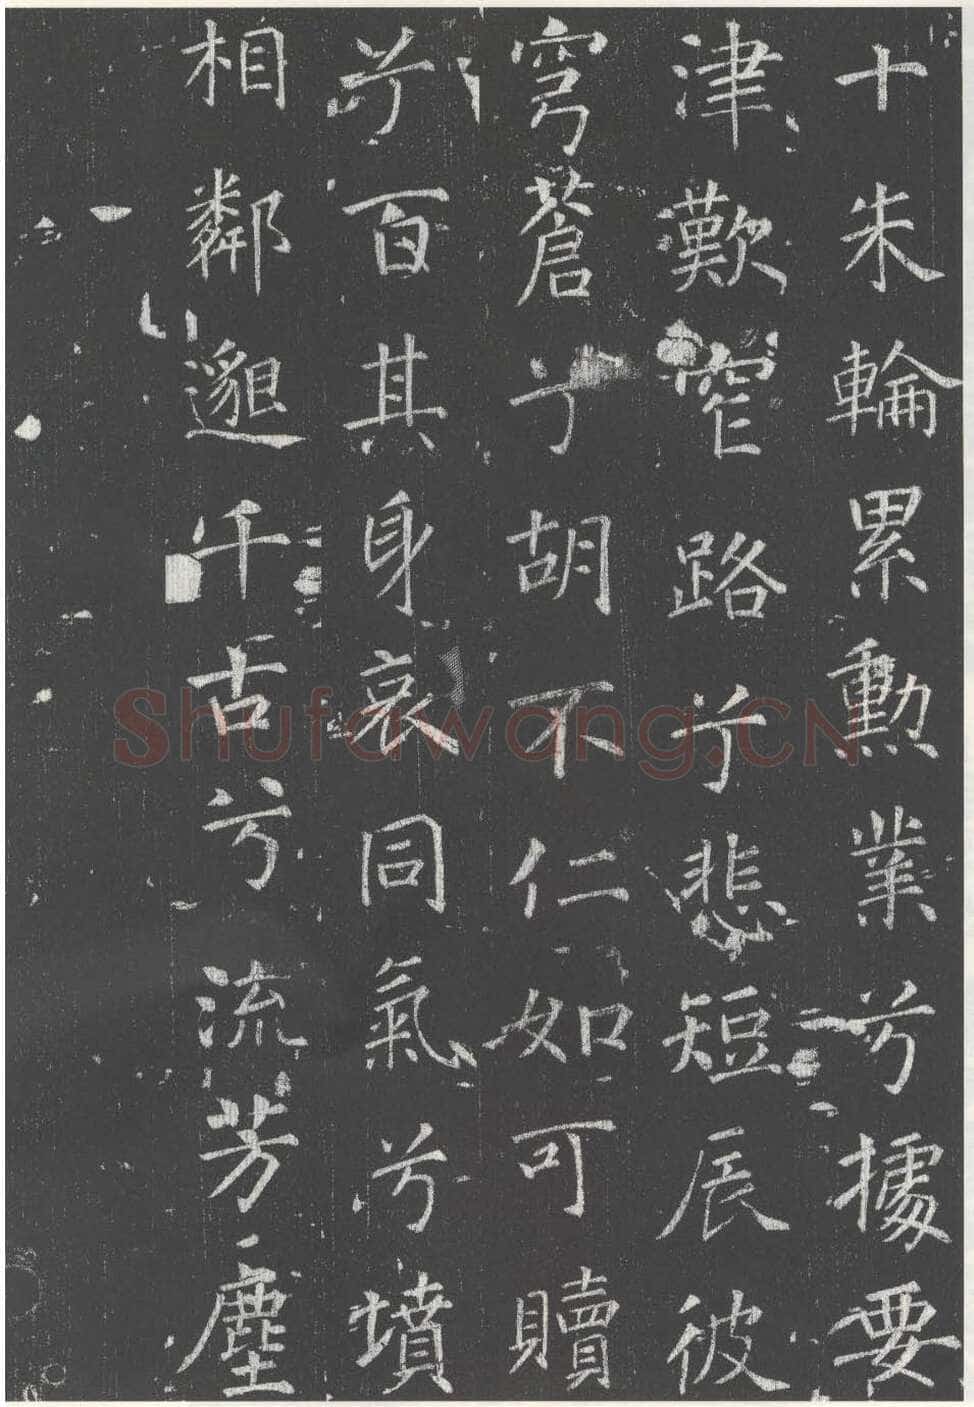 十朱輪累勳業兮據要
津歎窄路兮悲短辰彼
穹蒼兮胡不仁如可贖
兮百其身哀同氣兮墳
相鄰邈千古兮流芳塵
Shufawang.CN